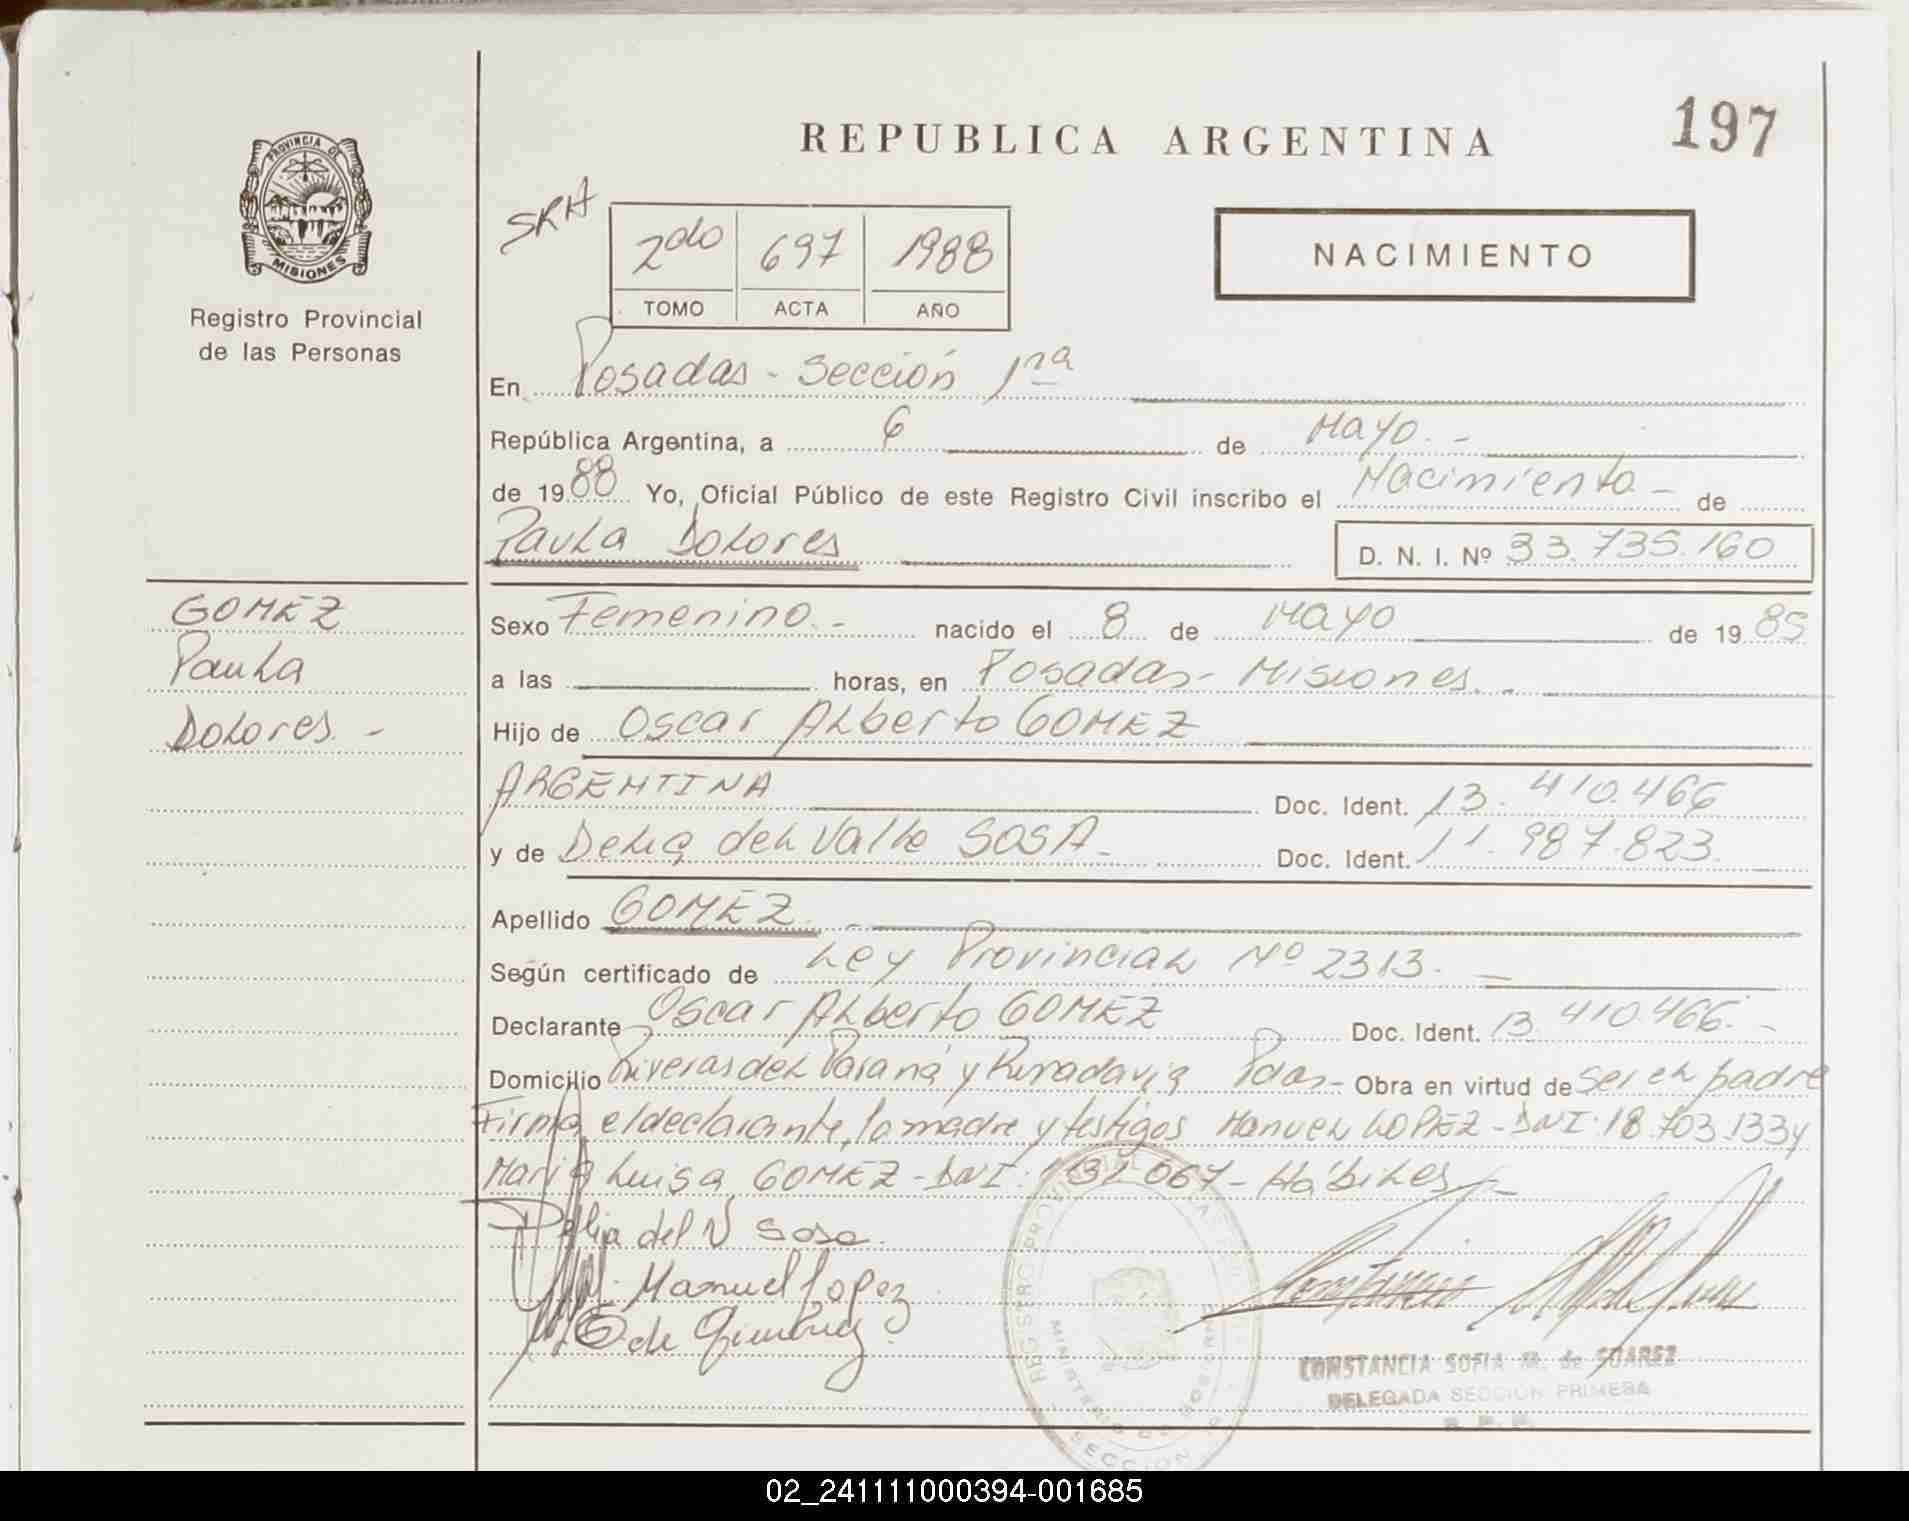 REPUBLICA ARGENTINA
197
PROVINCIA DE
MISIONES
Registro Provincial
de las Personas
SRA
2do 697 1988
TOMO ACTA AÑO
NACIMIENTO
En Posadas - Sección 1ra
República Argentina, a 6 de Mayo. -
de 1988 Yo, Oficial Público de este Registro Civil inscribo el Nacimiento - de
Paula Dolores
D. N. I. Nº 33.735.160
GOMEZ
Paula
Dolores. -
Sexo Femenino. - nacido el 8 de Mayo de 1985
a las horas, en Posadas - Misiones. -
Hijo de Oscar Alberto GOMEZ
ARGENTINA Doc. Ident. 13.410.466
y de Delia del Valle SOSA - Doc. Ident. 11.987.823.
Apellido GOMEZ. -
Según certificado de Ley Provincial Nº 2313. -
Declarante Oscar Alberto GOMEZ Doc. Ident. 13.410.466. -
Domicilio Riveras del Paraná y Rivadavia Pdas - Obra en virtud de ser el padre
Firma el declarante, la madre y testigos Manuel LOPEZ - DNI: 18.703.133 y
Maria Luisa GOMEZ - DNI: 067 - Hábiles -
Delia del V Sosa
Manuel Lopez
G de Gimenez
REGISTRO PROVINCIAL DE LAS PERSONAS
MINISTERIO DE GOBIERNO
SECCION
CONSTANCIA SOFIA M. de SUAREZ
DELEGADA SECCION PRIMERA
R. P. P.
02_241111000394-001685